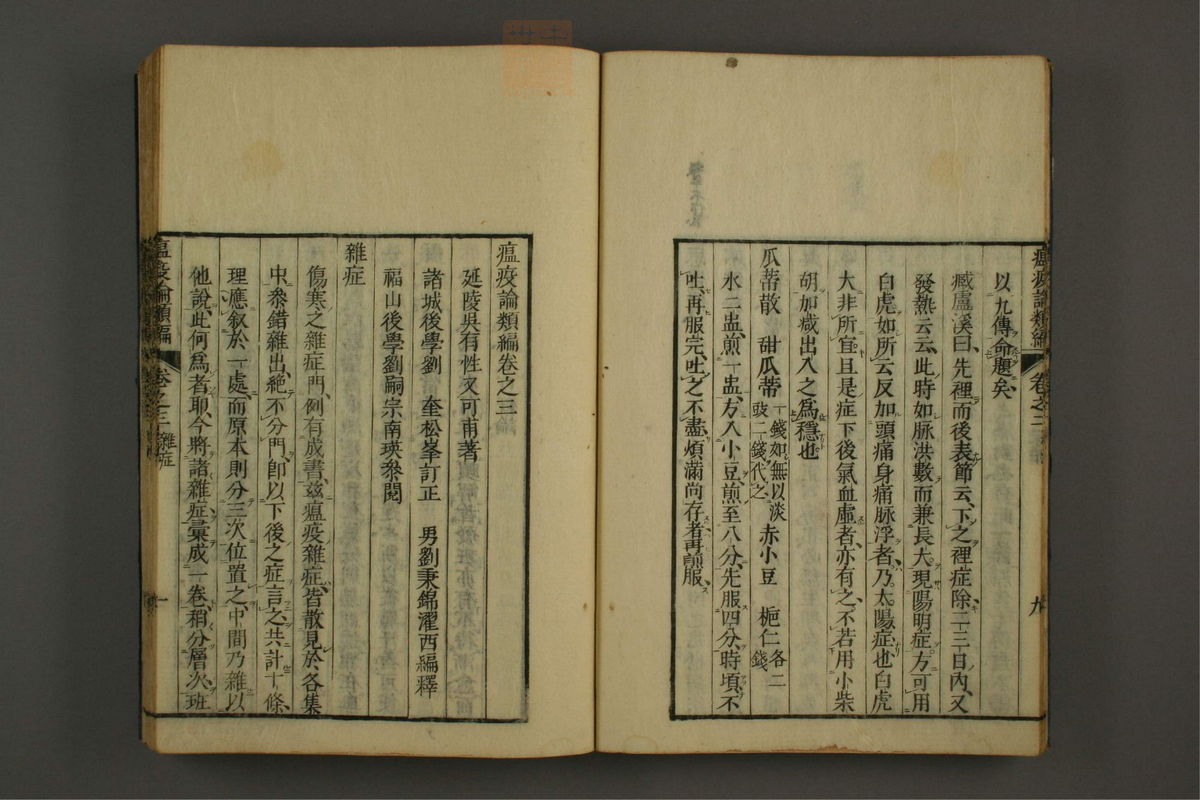 瘟疫論類編 卷之二 九
以九傳命題矣
臧盧溪曰先裡而後表節云下之裡症除二三日內又
發熱云云此時如脉洪數而兼長大現陽明症方可用
白虎如所云反加頭痛身痛脉浮者乃太陽症也白虎
大非所宜且是症下後氣血虛者亦有之不若用小柴
胡加減出入之爲穩也
瓜蒂散 甜瓜蒂一錢如無以淡豉二錢代之 赤小豆 梔仁各二錢
水二盅煎一盅方入小豆煎至八分先服四分時頃不
吐再服完吐之不盡煩滿尚存者再煎服
瘟疫論類編卷之三
延陵吳有性又可甫著
諸城後學劉 奎松峯訂正 男劉秉錦濯西編釋
福山後學劉嗣宗南瑛參閱
雜症
傷寒之雜症門例有成書茲瘟疫雜症皆散見於各集
中參錯雜出絶不分門卽以下後之症言之共計十條
理應叙於一處而原本則分三次位置之中間乃雜以
他說此何爲者耶今將諸雜症彙成一卷稍分層次班
瘟疫論類編 卷之三 雜症 一